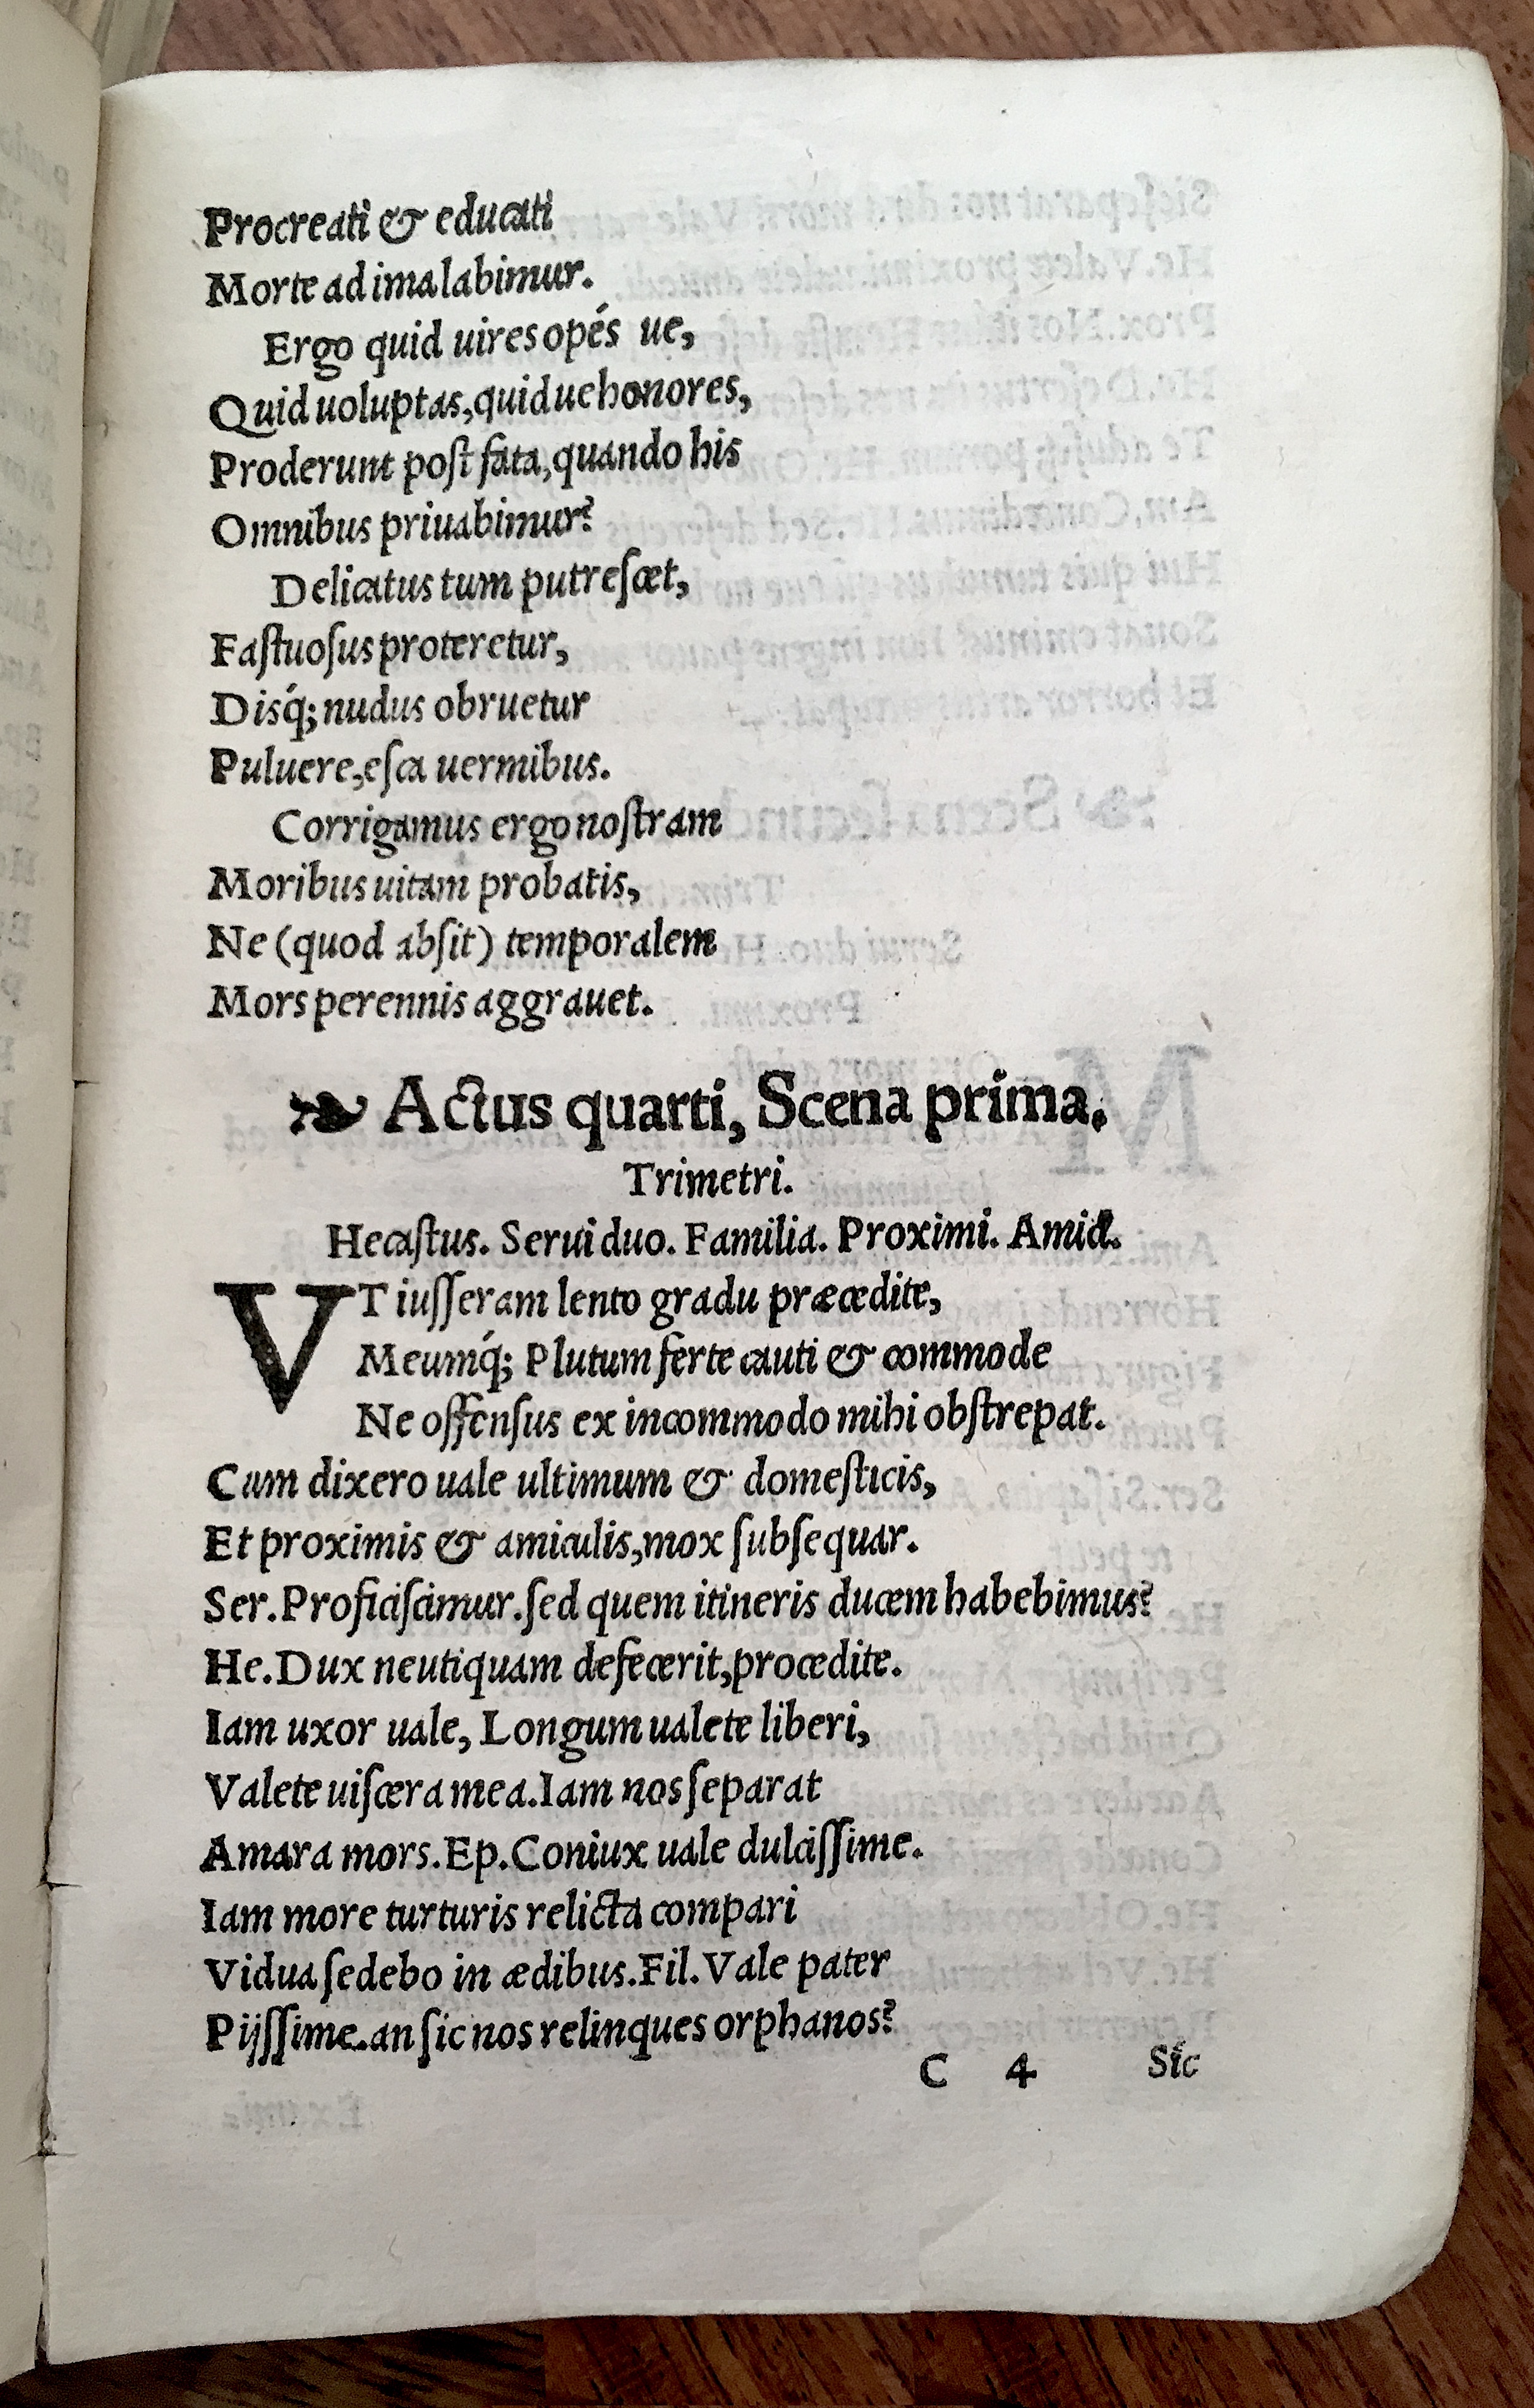 Procreati & educati
Morte ad ima labimur.
Ergo quid uires opés ue,
Quid uoluptas, quid ue honores,
Proderunt poſt fata, quando his
Omnibus priuabimur?
Delicatus tum putreſcet,
Faſtuoſus proteretur,
Disq́; nudus obruetur
Puluere, eſca uermibus.
Corrigamus ergo noſtram
Moribus uitam probatis,
Ne (quod abſit) temporalem
Mors perennis aggrauet.
❧ Actus quarti, Scena prima.
Trimetri.
Hecaſtus. Serui duo. Familia. Proximi. Amici.
VT iuſſeram lento gradu præcedite,
Meumq́; Plutum ferte cauti & commode
Ne offenſus ex incommodo mihi obſtrepat.
Cum dixero uale ultimum & domeſticis,
Et proximis & amiculis, mox ſubſequar.
Ser. Proficiſcimur. ſed quem itineris ducem habebimus?
He. Dux neutiquam defecerit, procedite.
Iam uxor uale, Longum ualete liberi,
Valete uiſcera mea. Iam nos ſeparat
Amara mors. Ep. Coniux uale dulciſſime.
Iam more turturis relicta compari
Vidua ſedebo in ædibus. Fil. Vale pater
Pijſſime. an ſic nos relinques orphanos?
C 4 Sic